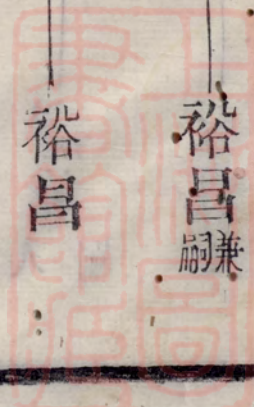 裕昌兼嗣
裕昌